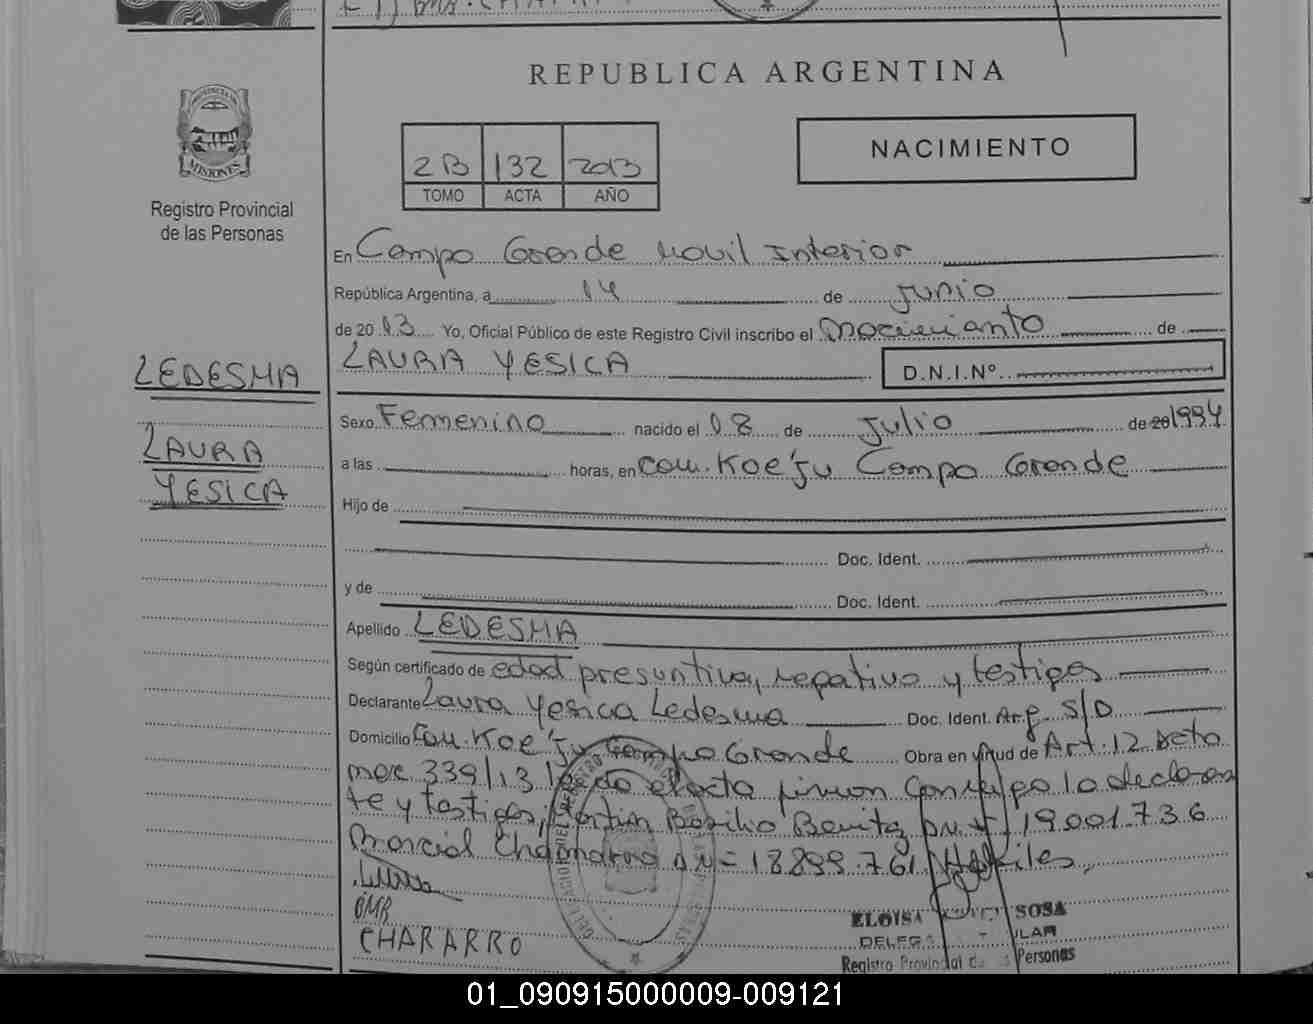 REPUBLICA ARGENTINA
NACIMIENTO
2B 132 2013
TOMO ACTA AÑO
PROVINCIA DE
MISIONES
Registro Provincial
de las Personas
En Campo Grande Movil Interior
República Argentina, a 14 de Junio
de 2013 Yo, Oficial Público de este Registro Civil inscribo el Nacimiento de
LAURA YESICA D.N.I.Nº
LEDESMA
LAURA
YESICA
Sexo Femenino nacido el 18 de Julio de 20 1994
a las horas, en com. Koe'ju Campo Grande
Hijo de
Doc. Ident.
y de
Doc. Ident.
Apellido LEDESMA
Según certificado de edad presuntiva, negativo y testigos
Declarante Laura Yesica Ledesma Doc. Ident. Arg. S/D
Domicilio Com. Koe'ju Campo Grande Obra en virtud de Art. 12 Decto
339/13 Leido el acta firman Conmigo la declaran
te y testigos, Basilio Benitez D.N.I 19.001.736
Chamorro D.N= 18899.761
OMR
CHARARRO
ELOISA SOSA
Registro Provincial de Personas
01_090915000009-009121